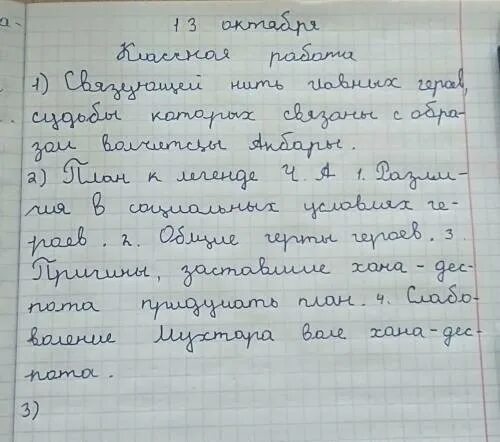 а-
13 октября
Классная работа
1) Связующей нить главных героев,
судьбы которых связаны с обра-
зом волчетсцы Акбары.
2) План к легенде Ч. А 1. Разли-
чия в социальных условиях ге-
роев. 2. Общие черты героев. 3.
Причины, заставшие хана-дес-
пота придумать план. 4. Слабо-
воление Мухтара воле хана-дес-
пота.
3)